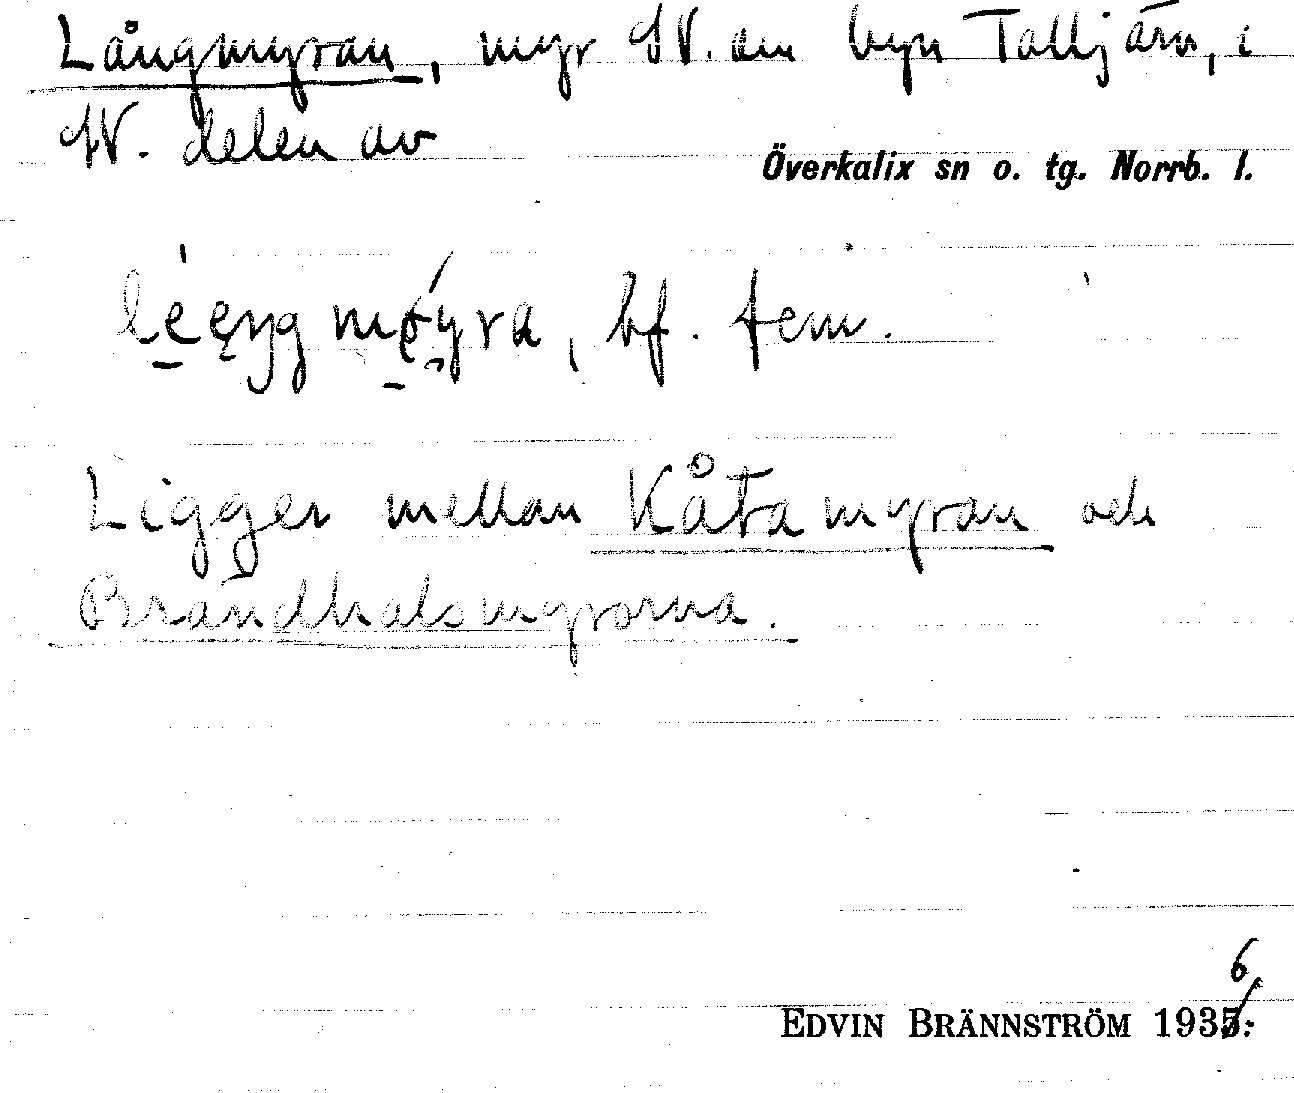 Långmyran, myr SV. om byn Talljärv, i
SV. delen av
Överkalix sn o. tg. Norrb. l.
bf. fem.
Ligger mellan Kåtamyran och
Brändhalsmyrorna.
6
EDVIN BRÄNNSTRÖM 1935.